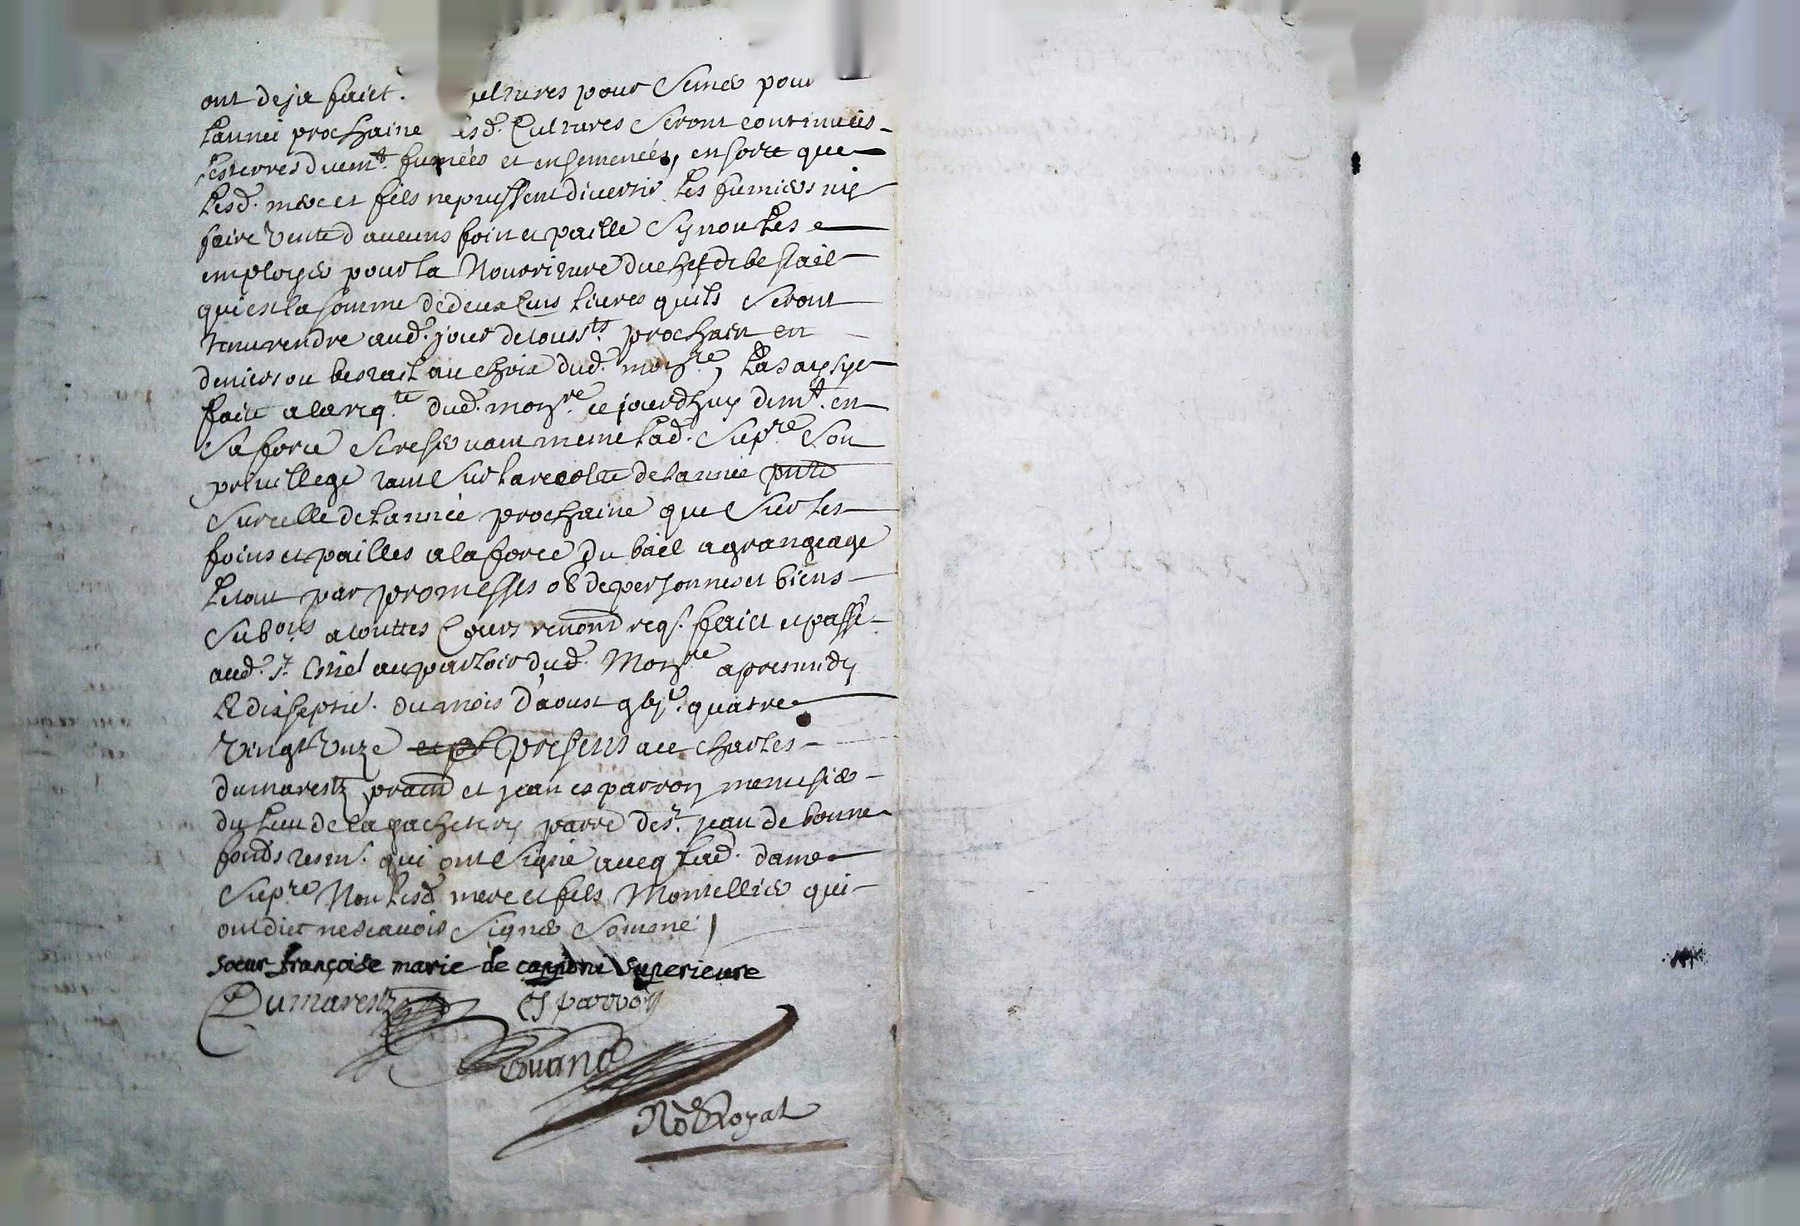 ont deja faict. ultures pour semer pour
Lannée prochaine lesd. Cultures seront continuées
les terres duem.t fumées et ensemencées, en sorte que
Lesd. mere et fils ne puissent divertir les fumiers ny
faire vente d aucuns foin et paille synon Les
employer pour la Nourriture du chef de bestail
qui est la somme de deux Cens livres quils seront
tenu rendre aud. jour de touss.ts prochain en
deniers ou bestail au choix dud. mon.re, La saysye
faite a la req.te dud. mon.re ce jourdhuy dem.t en
sa force se reservant meme lad. sup.re son
privillege tant sur la recolte de lannée pnte
sur celle de Lannée prochaine que sur les
foins et pailles a la force du bail a grangeage
Le tout par promesses ob de personnes et biens
sub.ons a touttes Cours renond req. faict et passé
aud. au parloir dud. Mon.re apres midy
Le dixseptie. du mois d'aoust gbj.c quatre
vingt unze presens a ce charles
dumarestz prattn et jean esparron menusier
du Lieu de la gachetery parre de s.t jean de bonne
fonds tesm. qui ont signé avecq Lad. dame
sup.re Non Lesd. mere et fils Montellier qui
ont dict ne scavoir signer sommé
sœur françoise marie de superieure
Dumarestz Esparron
No.e Royal